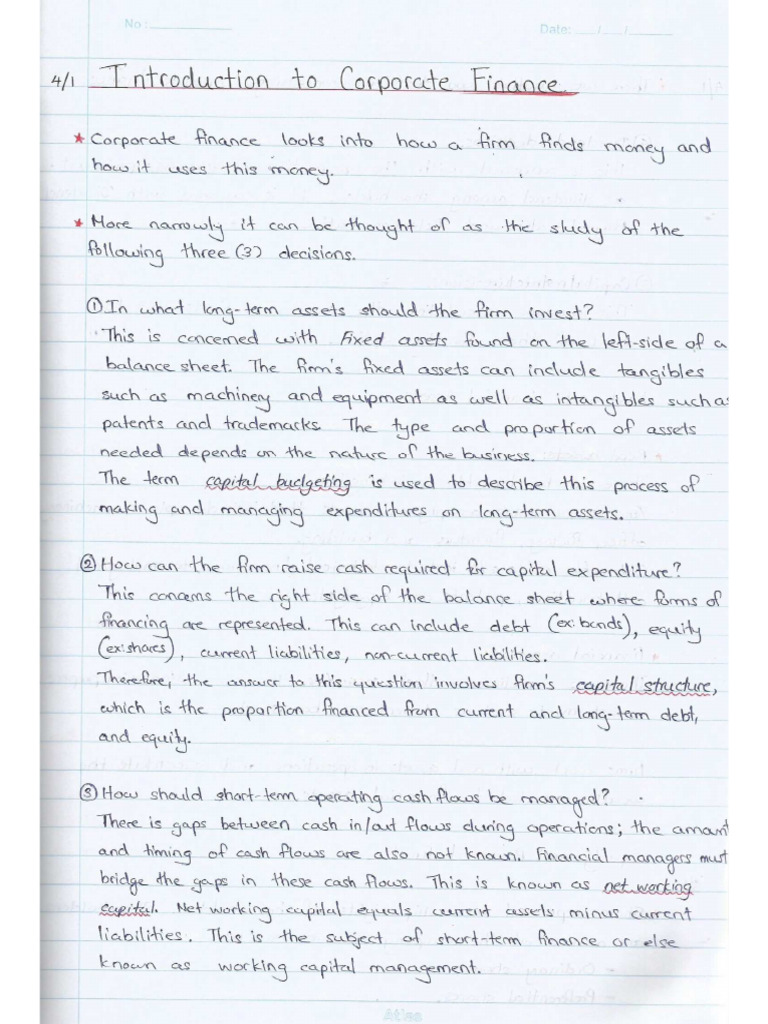 No:
Date: / /
4/1 Introduction to Corporate Finance
* Corporate finance looks into how a firm finds money and
how it uses this money.
* More narrowly it can be thought of as the study of the
following three (3) decisions.
① In what long-term assets should the firm invest?
This is concerned with Fixed assets found on the left-side of a
balance sheet. The firm's fixed assets can include tangibles
such as machinery and equipment as well as intangibles such as
patents and trademarks. The type and proportion of assets
needed depends on the nature of the business.
The term capital budgeting is used to describe this process of
making and managing expenditures on long-term assets.
② How can the firm raise cash required for capital expenditure?
This concerns the right side of the balance sheet where forms of
financing are represented. This can include debt (ex: bonds), equity
(ex: shares), current liabilities, non-current liabilities.
Therefore, the answer to this question involves firm's capital structure,
which is the proportion financed from current and long-term debt,
and equity.
③ How should short-term operating cash flows be managed?
There is gaps between cash in/out flows during operations; the amount
and timing of cash flows are also not known. Financial managers must
bridge the gaps in these cash flows. This is known as net working
capital. Net working capital equals current assets minus current
liabilities. This is the subject of short-term finance or else
known as working capital management.
Atlas